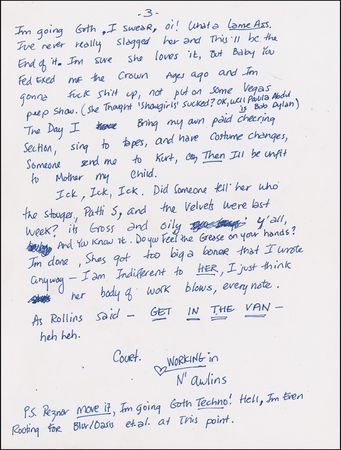 - 3 -
I'm going Goth. I swear, oi! What a Lame Ass.
I've never really slagged her and This'll be the
End of it. I'm sure she loves it, But Baby You
Fed Exed me the Crown Ages ago and I'm
gonna Fuck Shit up, not put on some Vegas
peep Show. (She Thought 'Showgirls' sucked? OK, well Paula Abdul
is Bob Dylan)
The Day I Bring my own paid cheering
Section, sing to tapes, and have Costume Changes,
Someone send me to Kurt, Then Ill be unfit
to Mother my Child.
Ick, Ick, Ick. Did Someone tell her who
the stooges, Patti S, and the Velvets were last
week? its Gross and oily y'all,
And You Know it. Do you Feel the Grease on your hands?
I'm done, Shes got too big a boner that I wrote
anyway — I am Indifferent to HER, I just think
her body of work blows, every note.
As Rollins said — GET IN THE VAN —
heh heh.
Court.
WORKING in
N'awlins
P.S. Reznor move it, I'm going Goth Techno! Hell, I'm Even
Rooting for Blur/Oasis et. al. at This point.